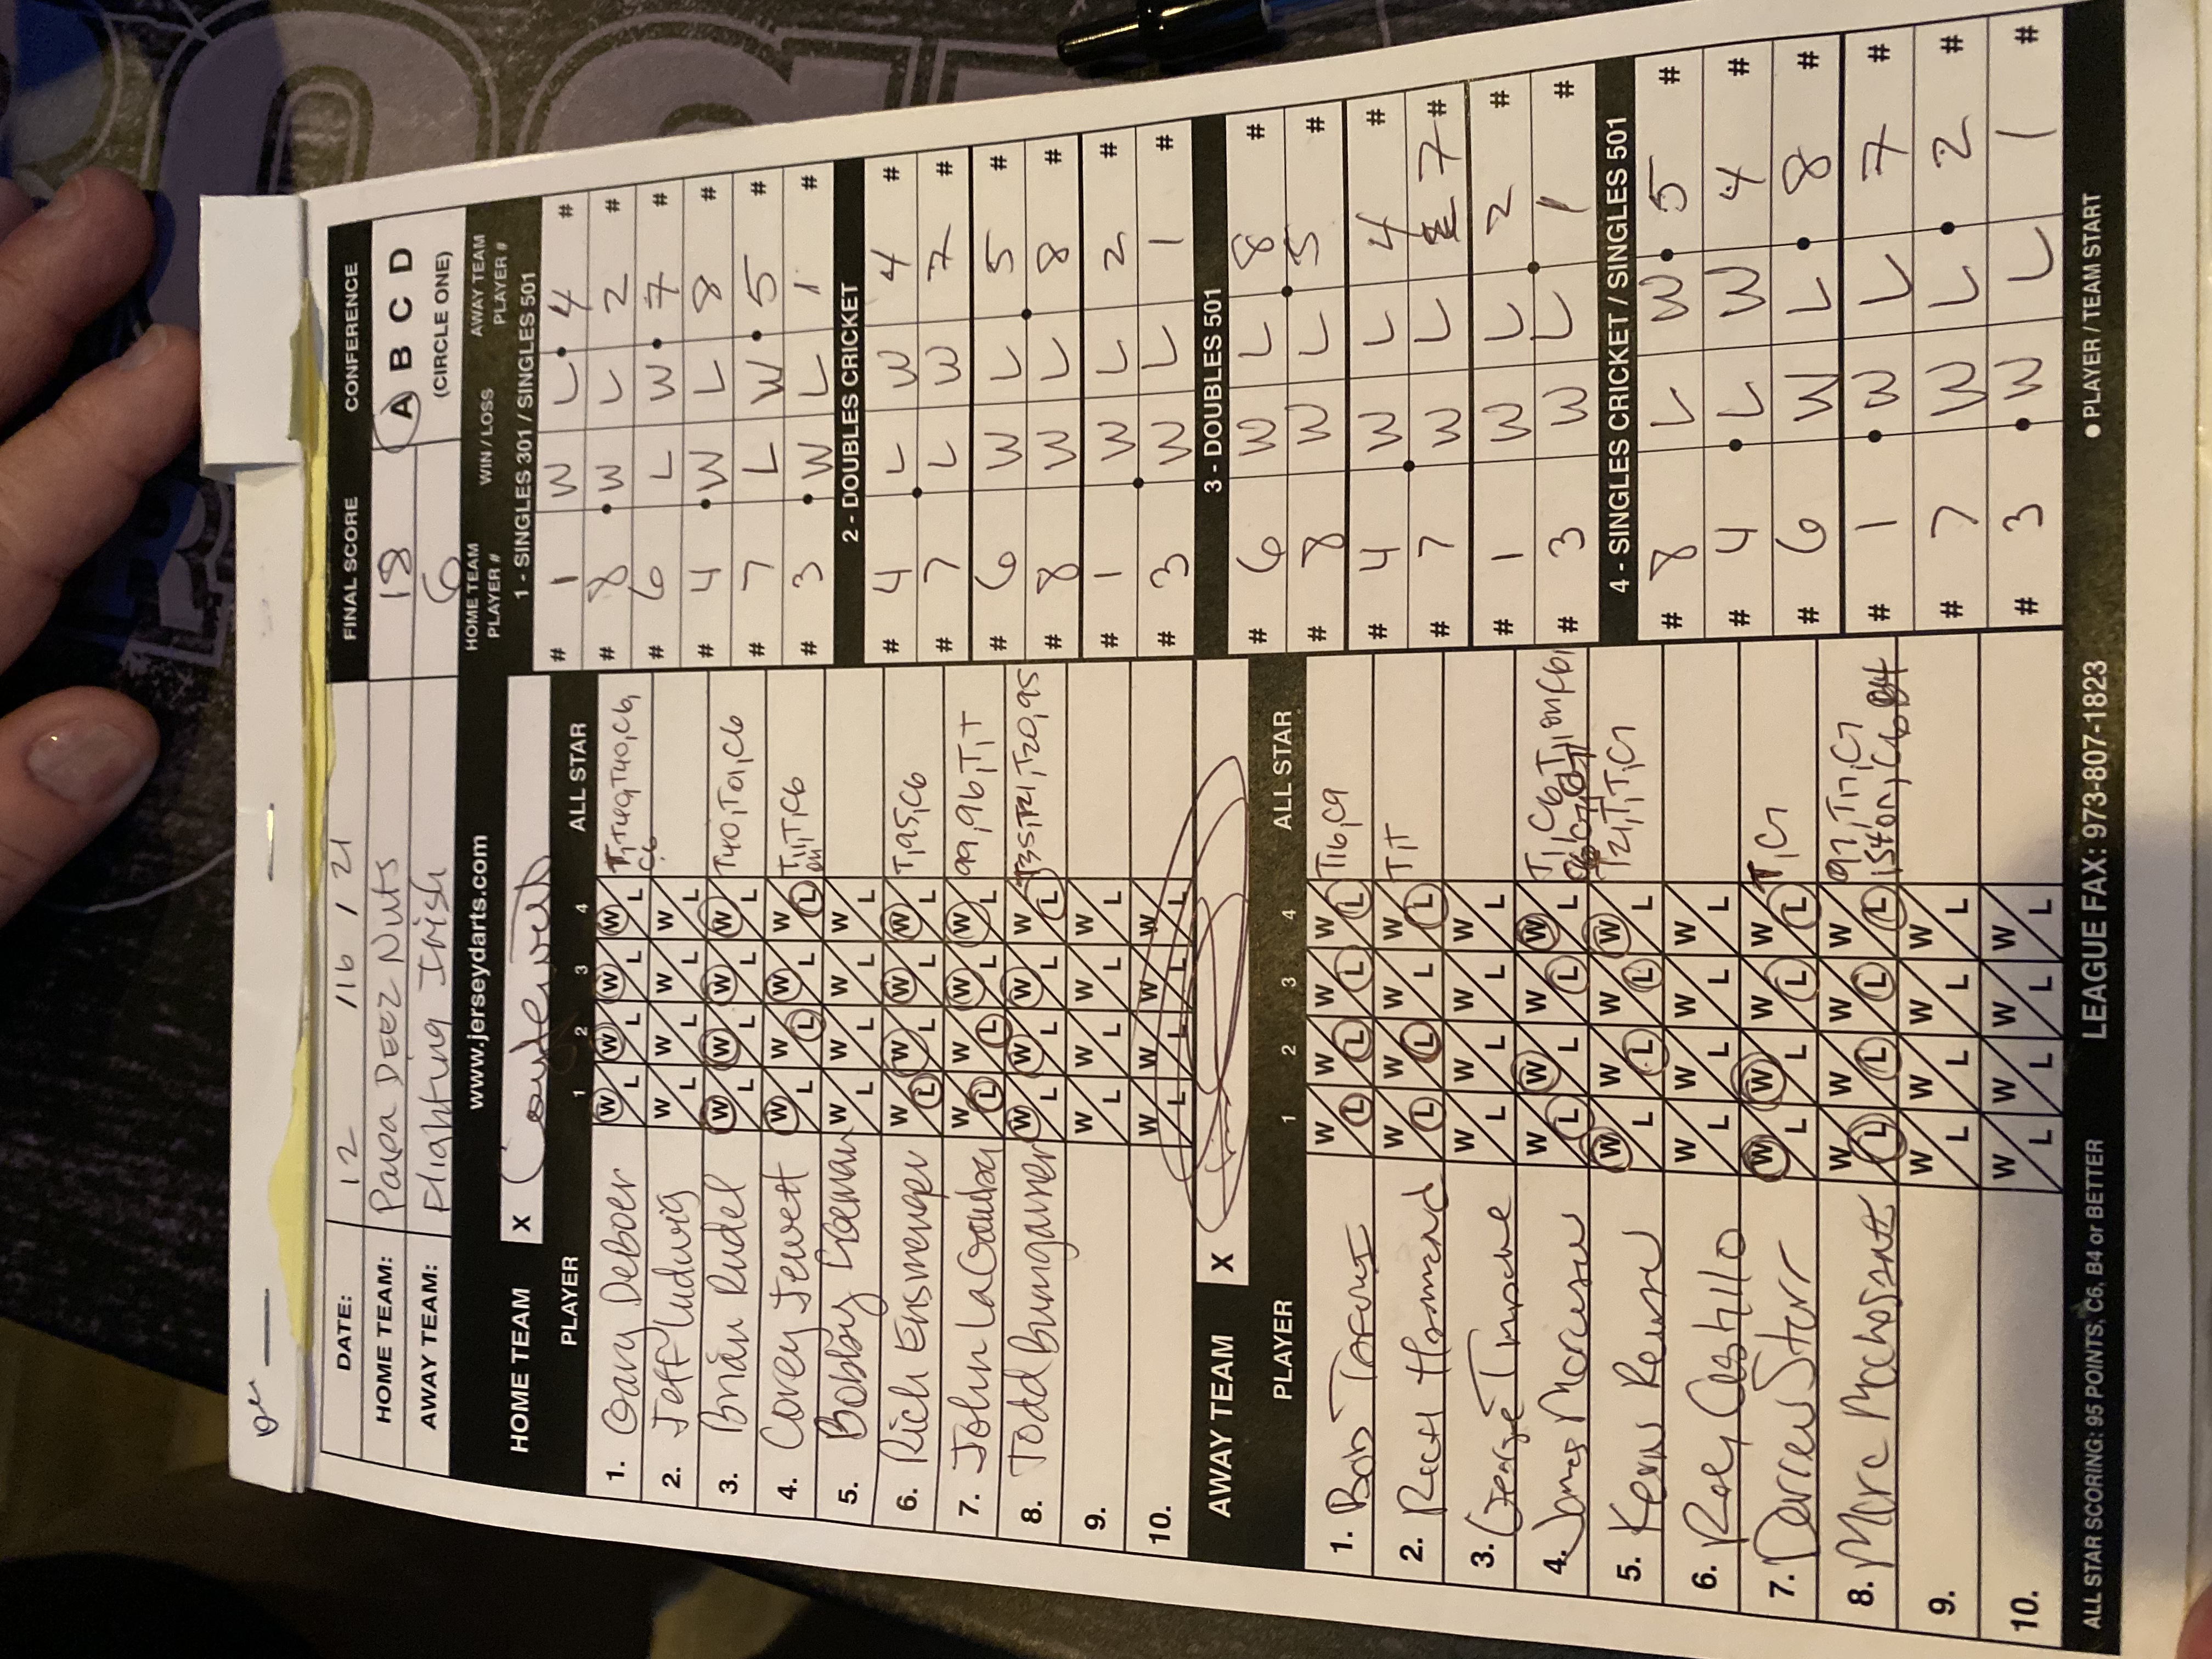 DATE: 12 / 16 / 21 FINAL SCORE CONFERENCE
HOME TEAM: Papa DEEZ Nuts 18 A B C D
AWAY TEAM: Flighting Irish 6 (CIRCLE ONE)
www.jerseydarts.com
HOME TEAM X
PLAYER 1 2 3 4 ALL STAR
1. Gary Deboer W L W L W L W L
2. Jeff Ludwig W L W L W L W L
3. Brian Rudel W L W L W L W L T40, T01, C6
4. Corey Jewett W L W L W L W L
5. Bobby W L W L W L W L
6. Rich Ensmenger W L W L W L W L T, 95, C6
7. John W L W L W L W L 99, 96, T, T
8. Todd Bumgarner W L W L W L W L
9. W L W L W L W L
10. W L W L W L W L
AWAY TEAM X
PLAYER 1 2 3 4 ALL STAR
1. Bob W L W L W L W L T16, C9
2. W L W L W L W L T, T
3. George W L W L W L W L
4. James W L W L W L W L
5. Kevin W L W L W L W L T21, T, T, C7
6. Ray Castillo W L W L W L W L
7. Darren Starr W L W L W L W L T, C7
8. Marc W L W L W L W L
9. W L W L W L W L
10. W L W L W L W L
HOME TEAM PLAYER # WIN / LOSS AWAY TEAM PLAYER #
1 - SINGLES 301 / SINGLES 501
# 1 W L 4 #
# 8 W L 2 #
# 6 L W 7 #
# 4 W L 8 #
# 7 L W 5 #
# 3 W L 1 #
2 - DOUBLES CRICKET
# 4 L W 4 #
# 7 L W 7 #
# 6 W L 5 #
# 8 W L 8 #
# 1 W L 2 #
# 3 W L 1 #
3 - DOUBLES 501
# 6 W L 8 #
# 8 W L 5 #
# 4 W L 4 #
# 7 W L 7 #
# 1 W L 2 #
# 3 W L 1 #
4 - SINGLES CRICKET / SINGLES 501
# 8 L W 5 #
# 4 L W 4 #
# 6 W L 8 #
# 1 W L 7 #
# 7 W L 2 #
# 3 W L 1 #
ALL STAR SCORING: 95 POINTS, C6, B4 or BETTER LEAGUE FAX: 973-807-1823 ● PLAYER / TEAM START